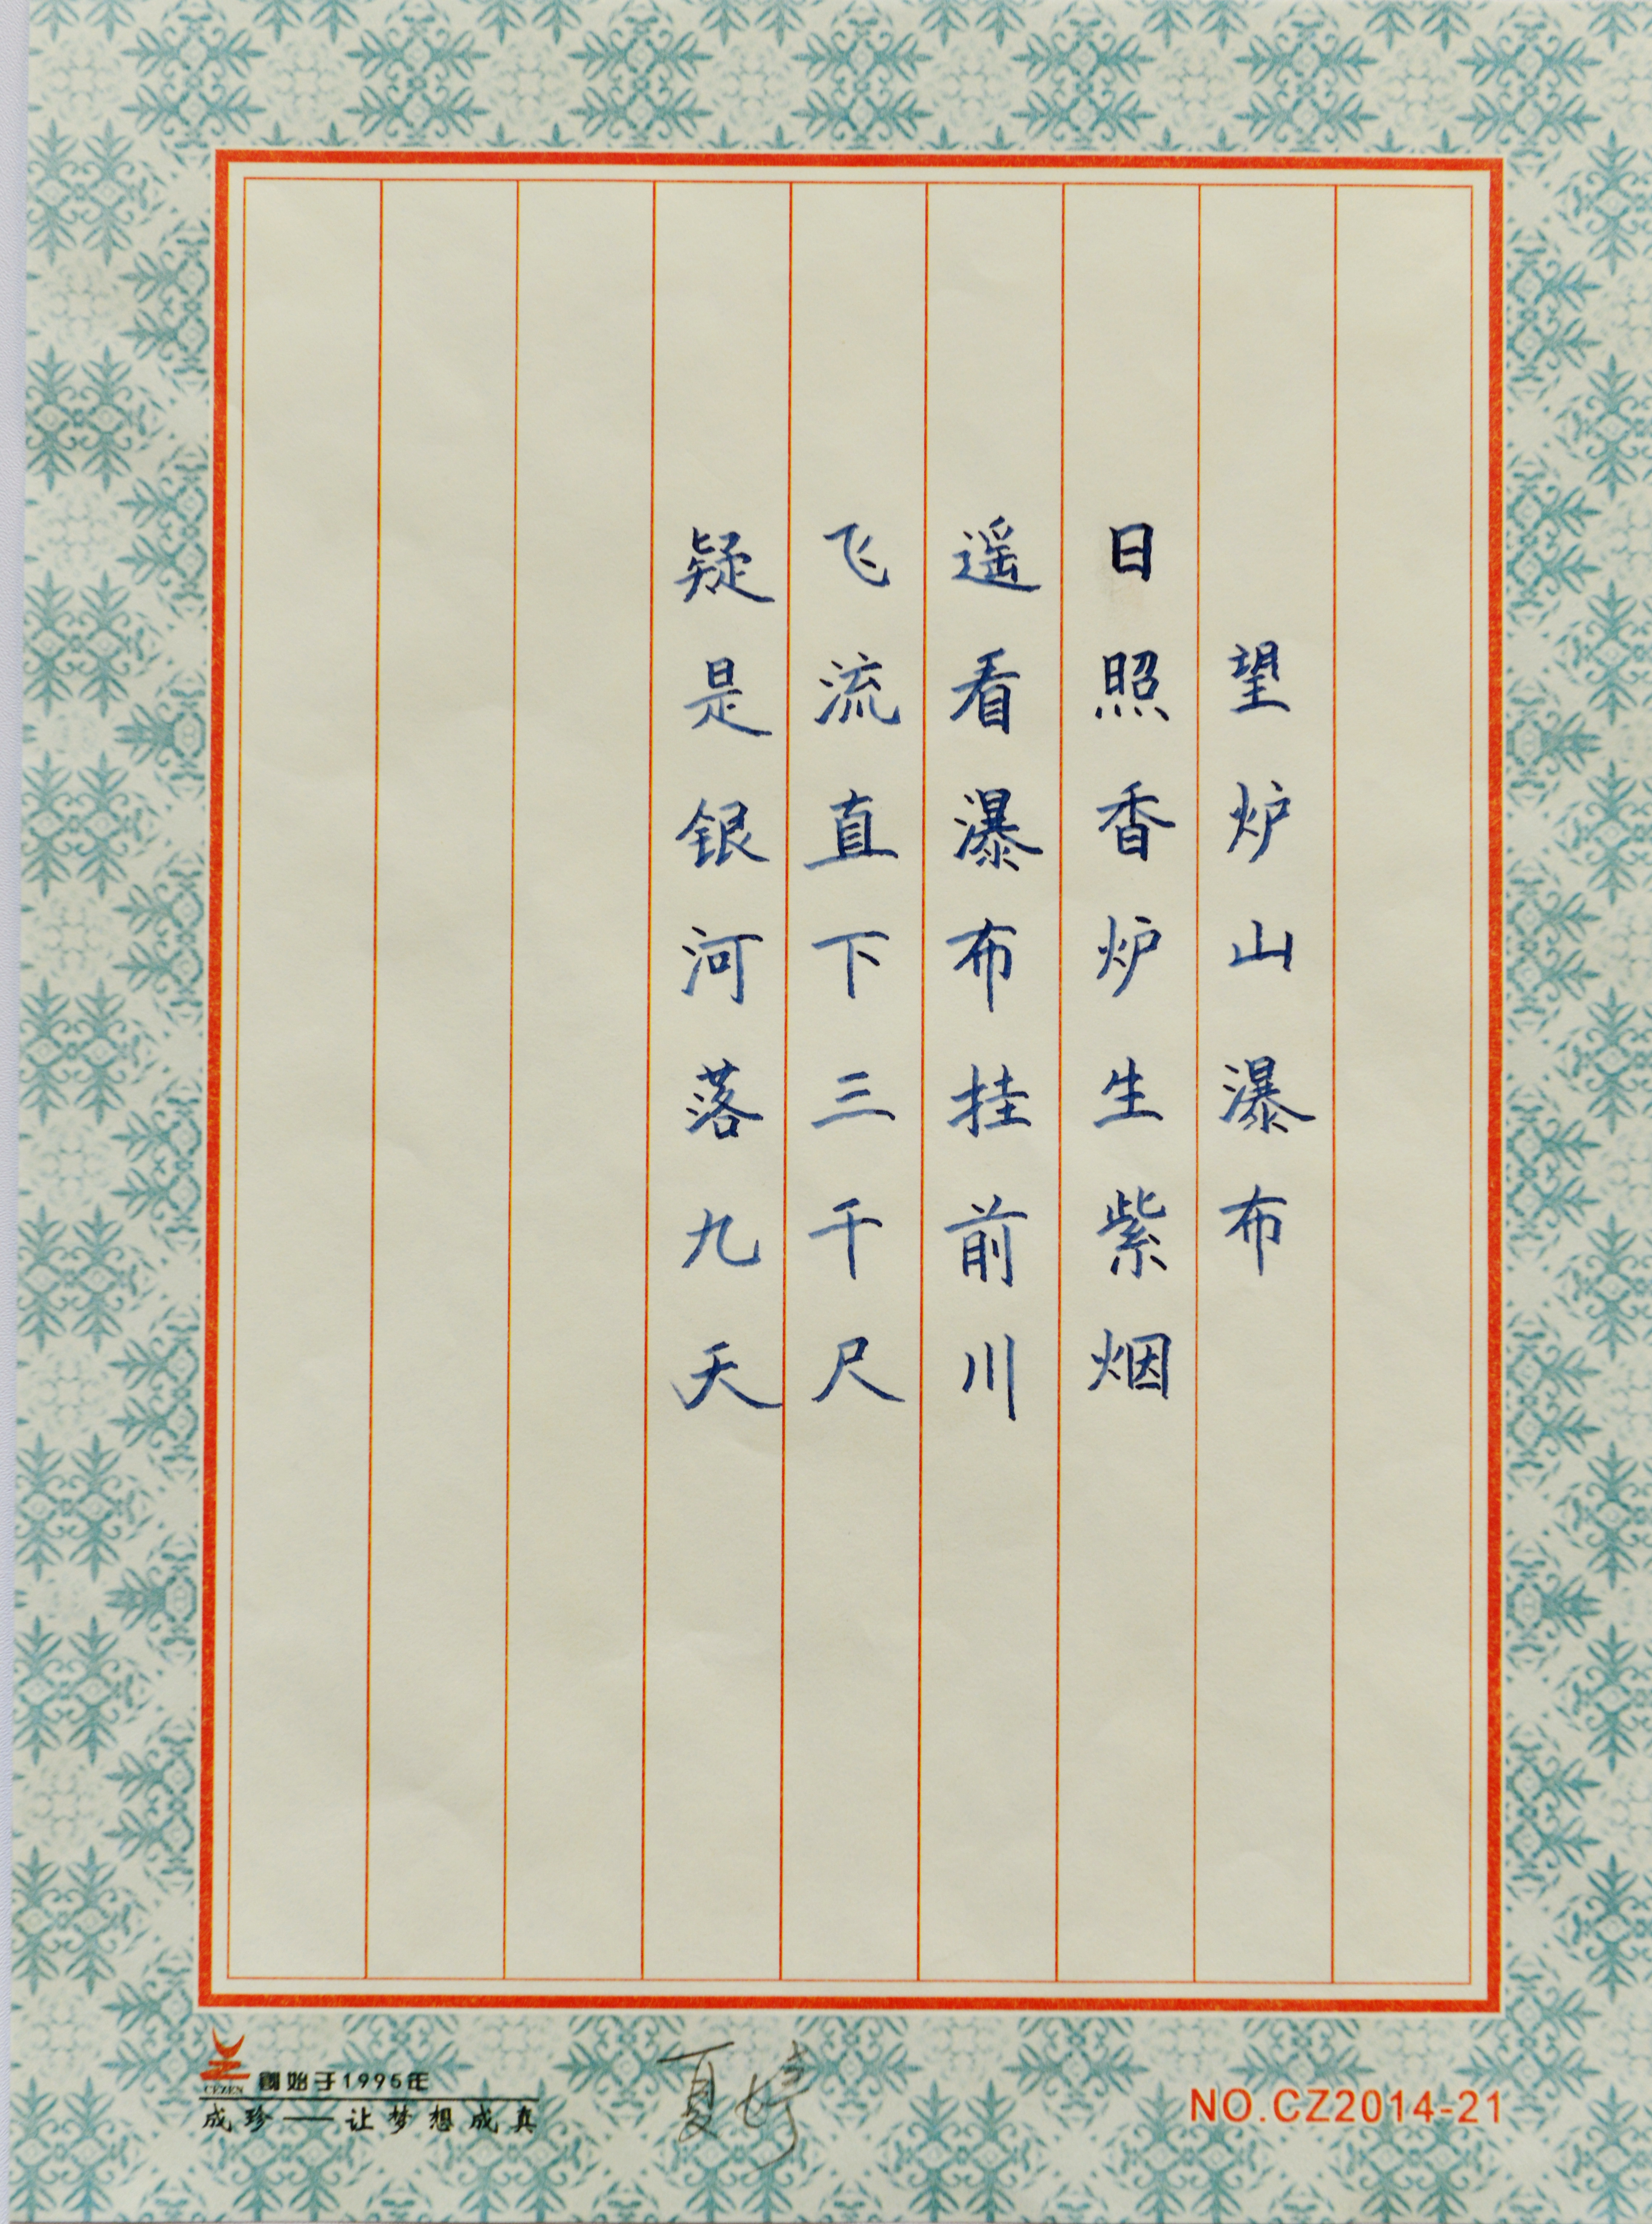 望炉山瀑布
日照香炉生紫烟
遥看瀑布挂前川
飞流直下三千尺
疑是银河落九天
CEZEN
創始于1995年
成珍——让梦想成真
夏婷
NO.CZ2014-21